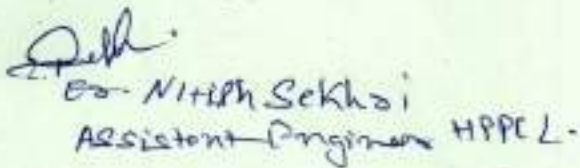 Er. Nitish Sekhri
Assistant Engineer HPPCL.